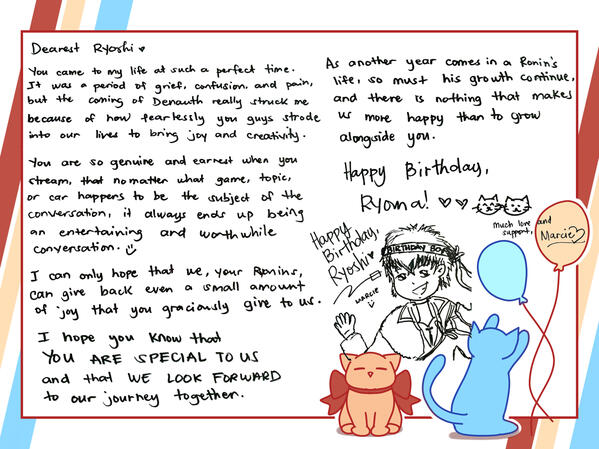 Dearest Ryoshi ♥
You came to my life at such a perfect time.
It was a period of grief, confusion, and pain,
but the coming of Denauth really struck me
because of how fearlessly you guys strode
into our lives to bring joy and creativity.
You are so genuine and earrest when you
stream, that no matter what game, topic,
or car happens to be the subject of the
conversation, it always ends up being
an entertaining and worthwhile
conversation.
I can only hope that we, your Ronins,
can give back even a small amount
of joy that you graciously give to us.
I hope you know that
YOU ARE SPECIAL TO US
and that WE LOOK FORWARD
to our journey together.
As another year comes in a Ronin's
life, so must his growth continue,
and there is nothing that makes
us more happy than to grow
alongside you.
Happy Birthday,
Ryoma! ♡♡
much love
support,
and
Marcie♡
Happy
Birthday,
Ryoshi♥
MARCIE
BIRTHDAY BOY